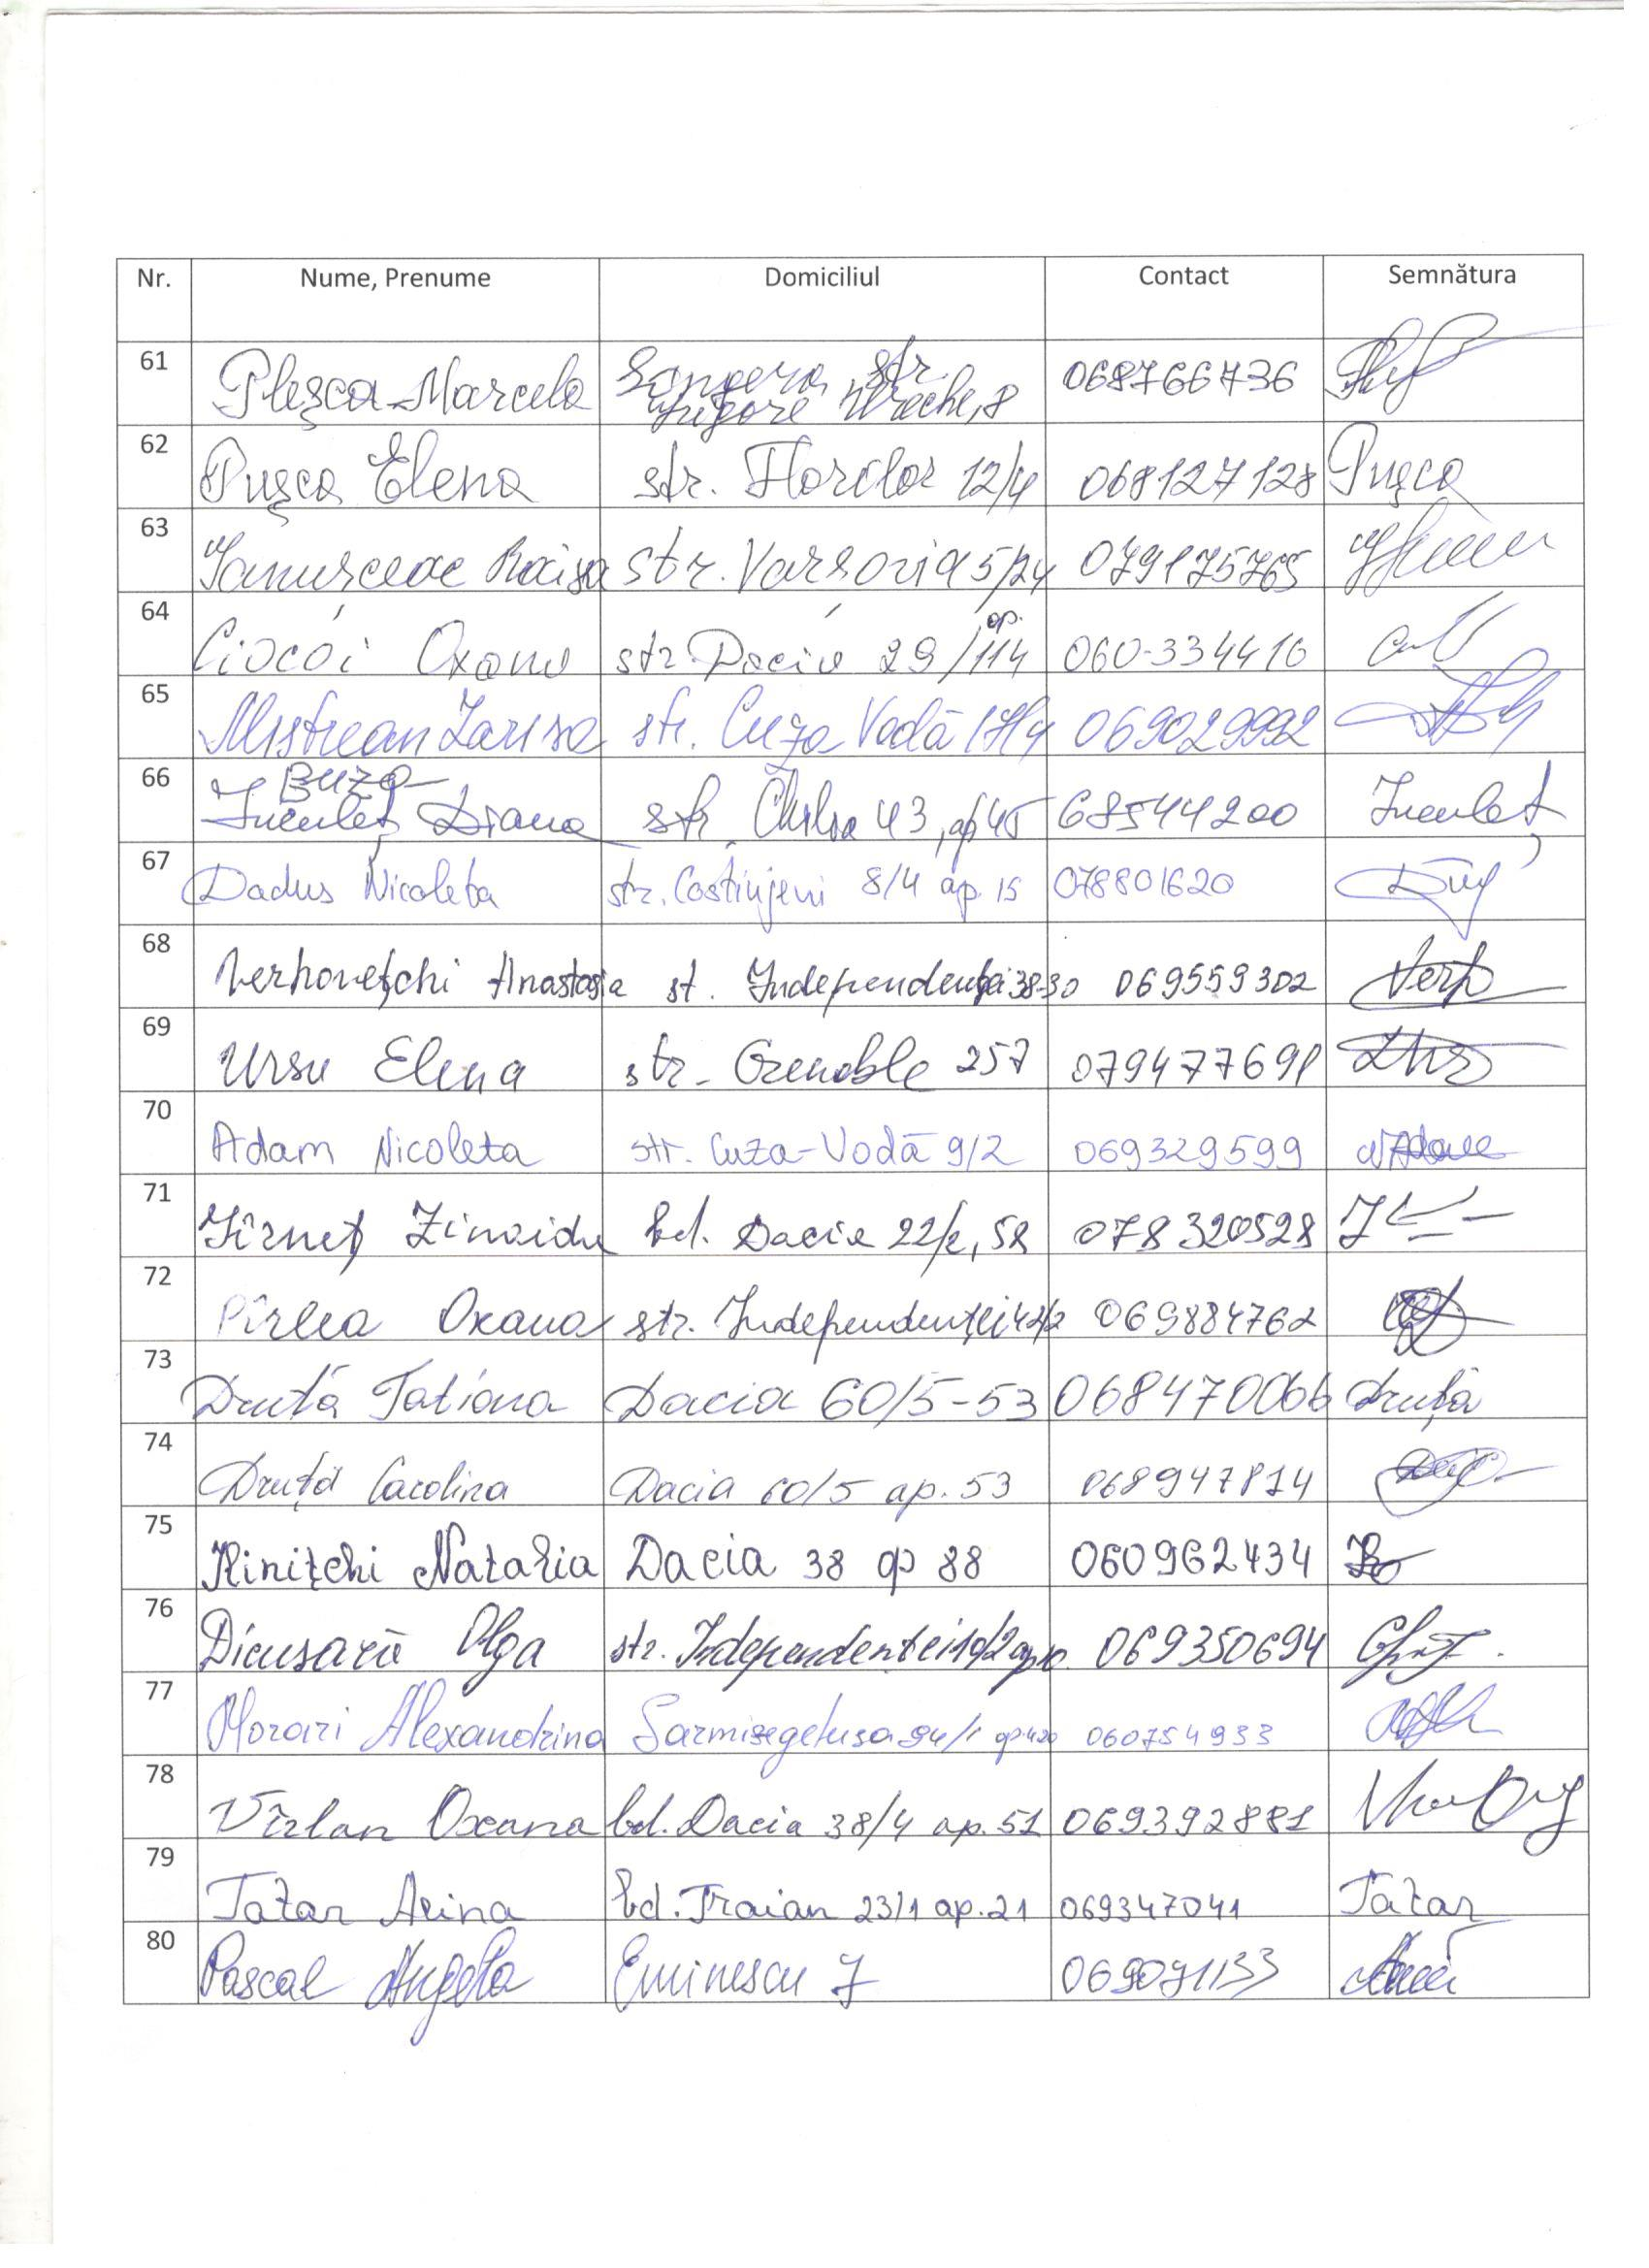 Nr. Nume, Prenume Domiciliul Contact Semnătura
61 Pleșca Marcela Sîngera, str. Grigore Ureche, 8 068766736
62 Pușca Elena str. Florilor 12/4 068127128 Pușca
63 str. Varsovia 5/24 079175765
64 Ciocoi Oxana str. Dacia 29/ap. 114 060-334416
65 Mistrean Larisa str. Cuza Vodă 069029992
66 Buza- Iuculeț Diana str 43, ap 45 68544200 Iuculeț
67 Dadus Nicoleta str. Costiujeni 8/4 ap. 15 078801620
68 Verhovețchi Anastasia st. Independenței 38-30 069559302 Verh
69 Ursu Elena str. Grenoble 257 079477691
70 Adam Nicoleta str. Cuza-Vodă 9/2 069329599
71 Zinaida bd. Dacia 22/2, 58 078320528
72 Pîrlea Oxana str. Independenței 42/2 069884762
73 Druță Tatiana Dacia 60/5-53 068470066 Druță
74 Druță Carolina Dacia 60/5 ap. 53 068947814
75 Kinițchi Natalia Dacia 38 ap 88 060962434
76 Dicusară Olga str. Independentei 10/2 069350694
77 Morari Alexandrina Sarmizegetusa 060754933
78 Vîrlan Oxana bd. Dacia 38/4 ap. 51 069392881
79 Tatar Arina bd. Traian 23/1 ap. 21 069347041 Tatar
80 Pascal Angela Eminescu 7 069091133